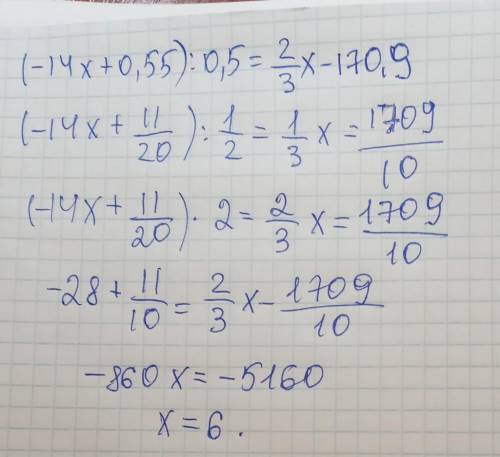 (-14x+0,55):0,5=2/3x-170,9
(-14x+11/20):1/2=1/3x=1709/10
(-14x+11/20)·2=2/3x=1709/10
-28+11/10=2/3x-1709/10
-860x=-5160
x=6.